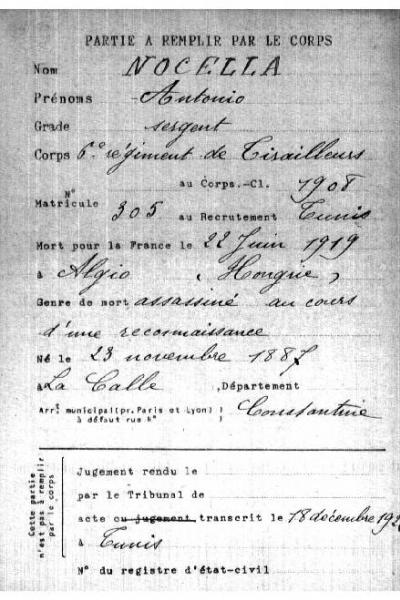 PARTIE A REMPLIR PAR LE CORPS
Nom NOCELLA
Prénoms Antonio
Grade sergent
Corps 6e régiment de Tirailleurs
N° au Corps.-Cl. 1908
Matricule 305 au Recrutement Tunis
Mort pour la France le 22 Juin 1919
à Algio (Hongrie)
Genre de mort assassiné au cours
d'une reconnaissance
Né le 23 novembre 1887
à La Calle, Département
Arrt municipal (pr. Paris et Lyon) ) Constantine
à défaut rue N° )
Cette partie
n'est pas à remplir
par le corps
Jugement rendu le
par le Tribunal de
acte ou jugement transcrit le 18 décembre 192
à Tunis
N° du registre d'état-civil